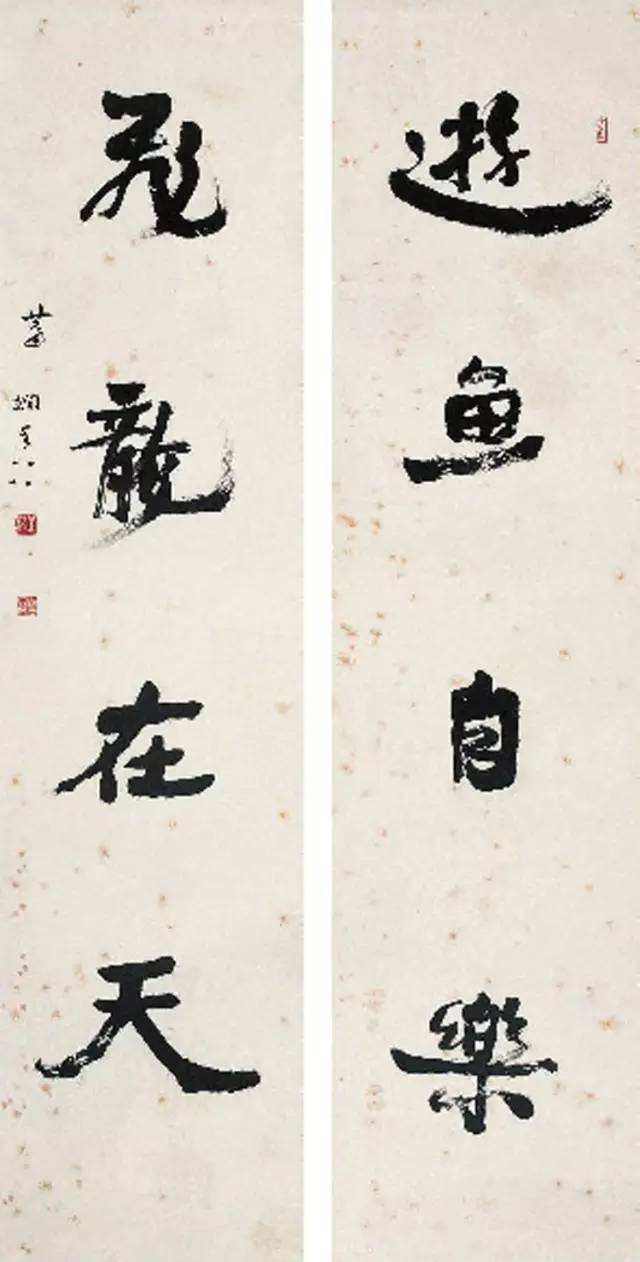 遊魚自樂
飛龍在天
萧娴